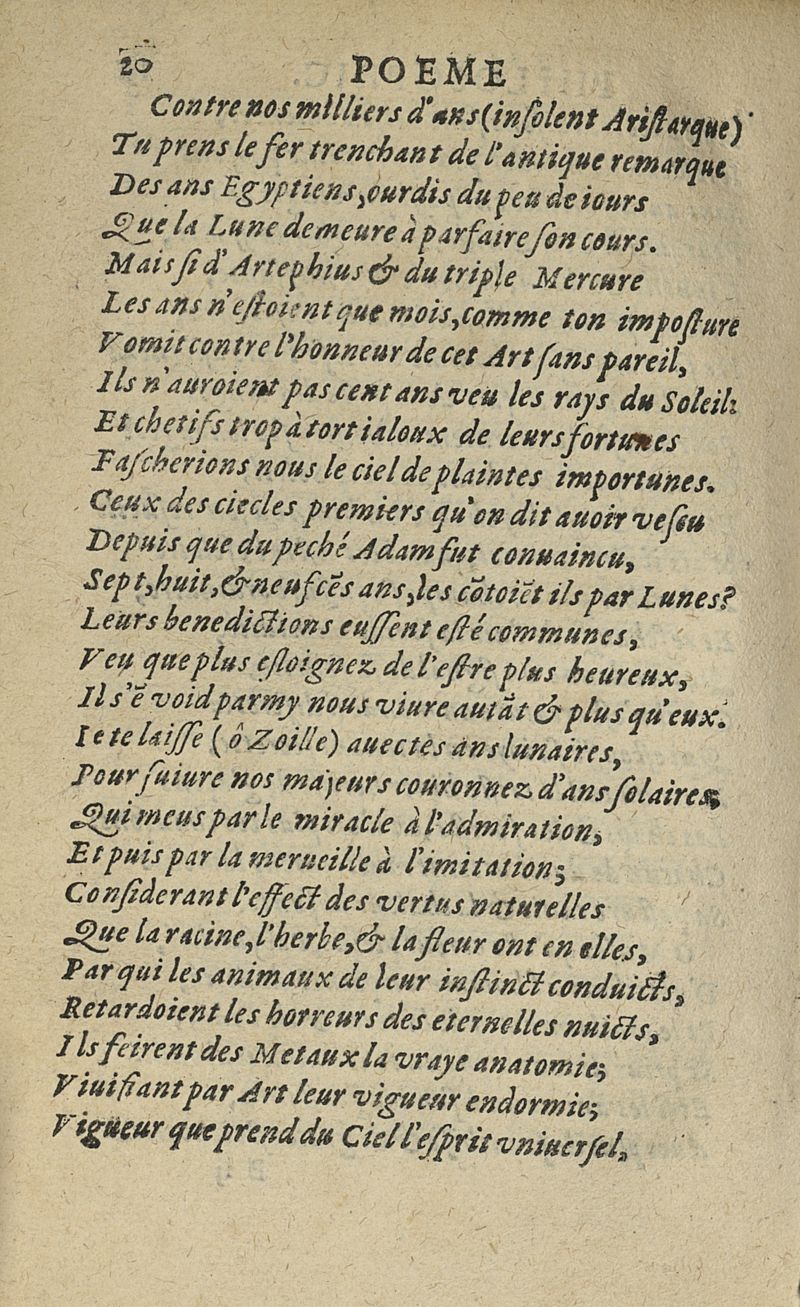 20 POEME
Contre nos milliers d'ans (insolent Aristarque)
Tu prens le fer trenchant de l'antique remarque
Des ans Egyptiens, ourdis du peu de iours
Que la Lune demeure à parfaire son cours.
Mais si d'Artephius & du triple Mercure
Les ans n'estoient que mois, comme ton imposture
Vomit contre l'honneur de cet Art sans pareil,
Ils n'auroient pas cent ans veu les rays du Soleil:
Et chetifs trop à tort ialoux de leurs fortunes
Fascherions nous le ciel de plaintes importunes.
Ceux des ciecles premiers qu'on dit auoir vescu
Depuis que du peché Adam fut conuaincu,
Sept, huit, & neufcẽs ans, les cõtoiẽt ils par Lunes?
Leurs benedictions eussent esté communes,
Veu que plus esloignez de l'estre plus heureux,
Il s'ẽ void parmy nous viure autãt & plus qu'eux.
Ie te laisse (ô Zoille) auec tes ans lunaires,
Pour suiure nos majeurs couronnez d'ans solaires,
Qui meus par le miracle à l'admiration,
Et puis par la merueille à l'imitation;
Considerant l'effect des vertus naturelles
Que la racine, l'herbe, & la fleur ont en elles,
Par qui les animaux de leur instinct conduicts,
Retardoient les horreurs des eternelles nuicts,
Ils feirent des Metaux la vraye anatomie;
Viuifiant par Art leur vigueur endormie;
Vigueur que prend du Ciel l'esprit vniuersel,